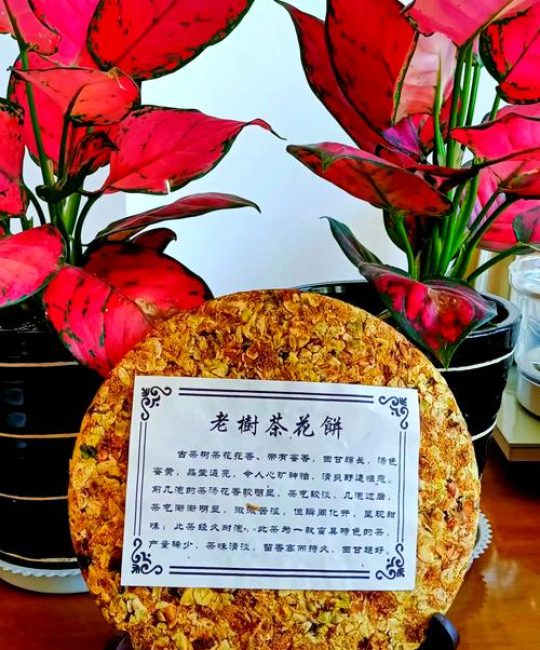 老樹茶花餅
古茶树茶花花香、带有蜜香,回甘绵长,汤色
蜜黄,晶莹透亮,令人心旷神怡,清爽舒适惬意。
前几泡的茶汤花香较明显,茶气较淡,几泡过后,
茶气渐渐明显,微微苦涩,但瞬间化开,呈现甜
味;此茶经久耐泡,此茶为一款富具特色的茶,
产量稀少,茶味清淡,留香高而持久,回甘超好。